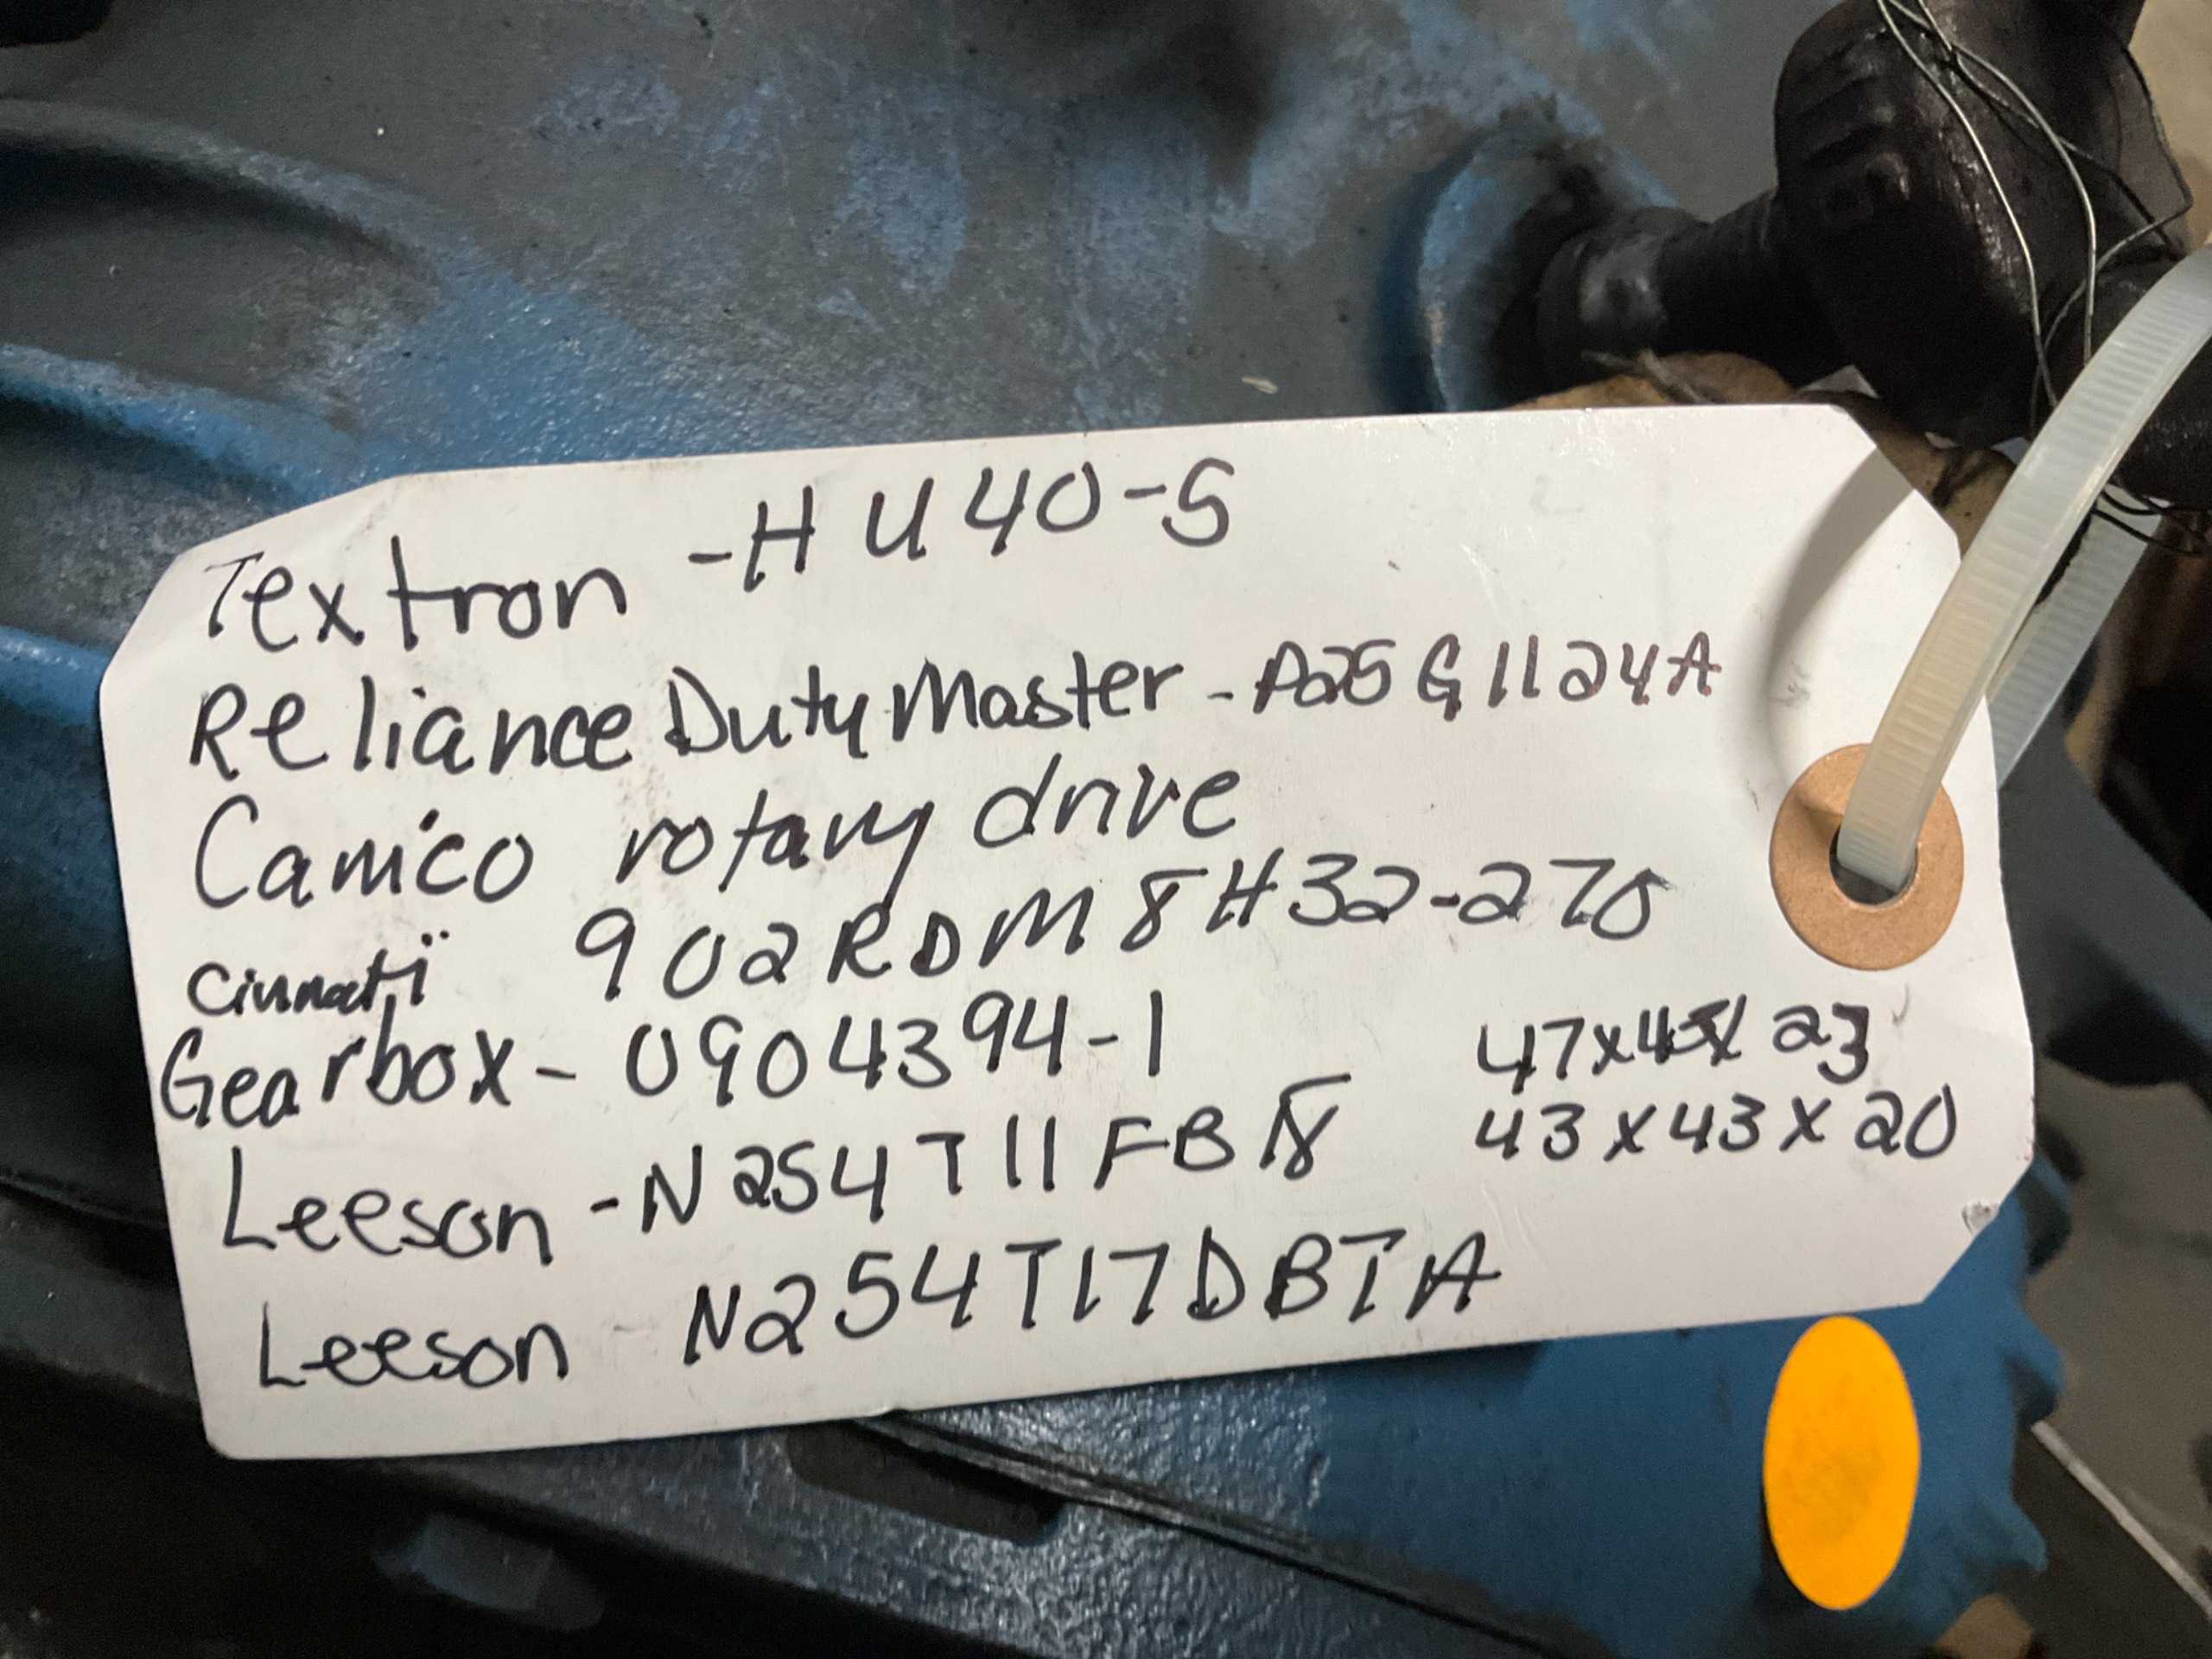 Textron - HU40-S
Reliance Duty Master - P25G1124A
Camco rotary drive
902RDM8H32-270
Cinnati
Gearbox - 0904394-1
47x45x23
43x43x20
Leeson - N254T11FB18
Leeson N254T17DBTA